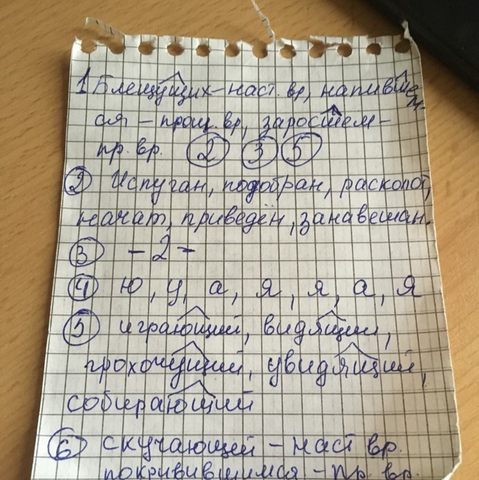 1 Блещущих - наст. вр, напивше
ся - прош. вр, заросшем -
пр. вр. ② ③ ⑤
② Испуган, подобран, расколот,
начат, приведён, занавешан.
③ - 2 -
④ ю, у, а, я, я, а, я
⑤ играющий, видящий,
грохочущий, увидящий,
собирающий
⑥ скучающей - наст вр.
покривившимся - пр. вр.